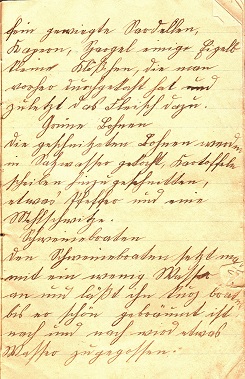 fein gewiegte Sardellen,
Kapern, Spargel einige Eigelb
kleine Klöschen, die man
vorher durchgekocht hat und
zuletzt das Fleisch dazu.
Grüne Bohnen
Die geschnitzten Bohnen werden
in Salzwasser gekocht, Kartoffeln
scheiben hinzugeschnitten,
etwas Pfeffer und eine
Mehlschwitze.
Schweinebraten
Den Schweinebraten setzt man
mit ein wenig Wasser
an und läßt ihn
bis er schön gebräunt ist
nach und nach wird etwas
Wasser zugegossen.